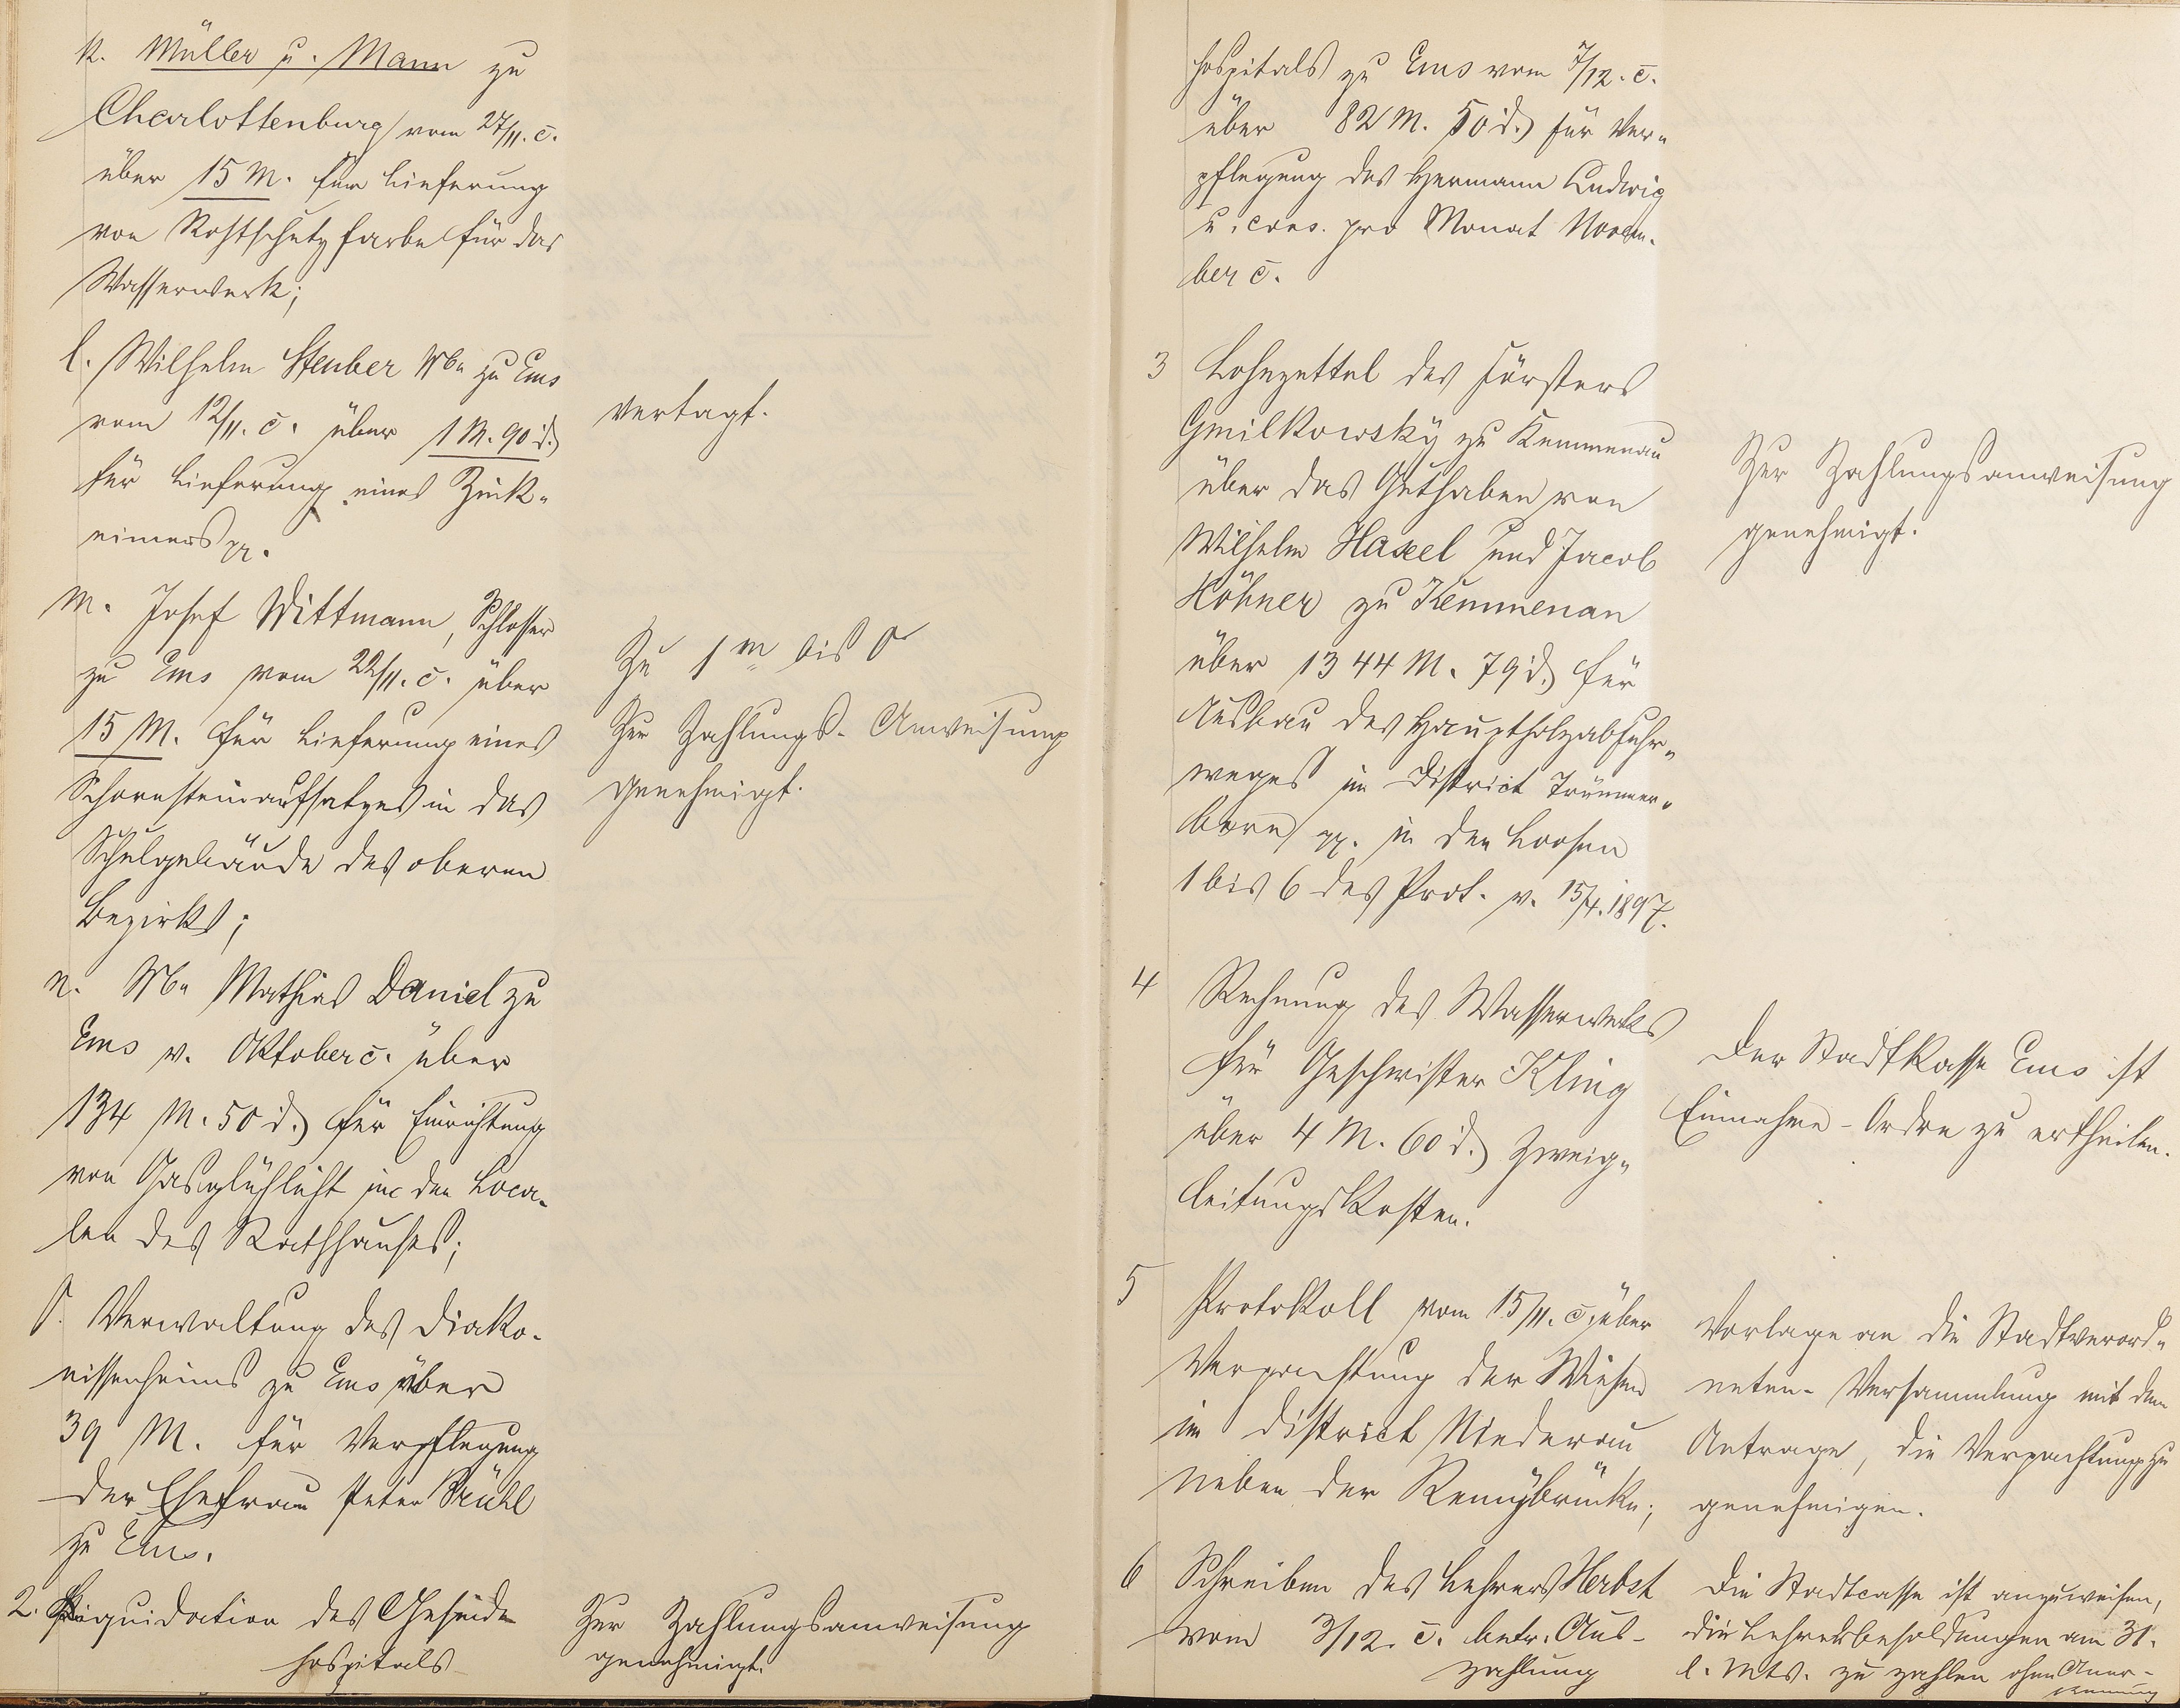 k. Müller u. Mann zu
Charlottenburg vom 27/11. c.
über 15 M. für Lieferung
von Rostschutzfarbe für das
Wasserwerk;
l. Wilhelm Steuber Wb. zu Ems
vom 12/11. c. über 1 M. 90 d.
für Lieferung eines Zink-
eimers pp.
vertagt.
m. Josef Wittmann, Schlosser
zu Ems vom 22/11. c. über
15 M. für Lieferung eines
Schornsteinaufsatzes in das
Schulgebäude des oberen
Bezirks;
Zu 1 m bis o
Zur Zahlungs-Anweisung
genehmigt.
n. Wb. Mathias Daniel zu
Ems v. Oktober c. über
134 M. 50 d. für Einrichtung
von Gasglühlicht in den Loca-
len des Rathhauses;
o. Verwaltung des Diako-
nissenheims zu Ems über
39 M. für Verpflegung
der Ehefrau Peter
zu Ems.
2. Liquidation des Gesinde
hospitals
Zur Zahlungsanweisung
genehmigt.
hospitals zu Ems vom 7/12. c.
über 82 M. 50 d. für Ver-
pflegung des Hermann Ludwig
u. cons. pro Monat Novem-
ber c.
3 Lohnzettel des Försters
Gmilkowsky zu Kemmenau
über das Guthaben von
Wilhelm Hasel und Jacob
Höhner zu Kemmenau
über 1344 M. 79 d. für
Ausbau des Hauptholzabfuhr-
weges im District Trümmer-
born pp. in den Loosen
1 bis 6 des Prot. v. 15/4. 1897.
Zur Zahlungsanweisung
genehmigt.
4 Rechnung des Wasserwerks
für Geschwister Kling
über 4 M. 60 d. Zweig-
leitungskosten.
Der Stadtkasse Ems ist
Einnahme-Ordre zu ertheilen.
5 Protokoll vom 15/11. c. über
Verpachtung der Wiesen
im District Niederau
neben der Remybrücke;
Vorlage an die Stadtverord-
neten-Versammlung mit dem
Antrage, die Verpachtung zu
genehmigen.
6 Schreiben des Lehrers Herbst
vom 3/12. c. betr. Aus-
zahlung
Die Stadtcasse ist anzuweisen,
die Lehrerbesoldungen am 31.
l. Mts. zu zahlen ohne Aner-
kennung